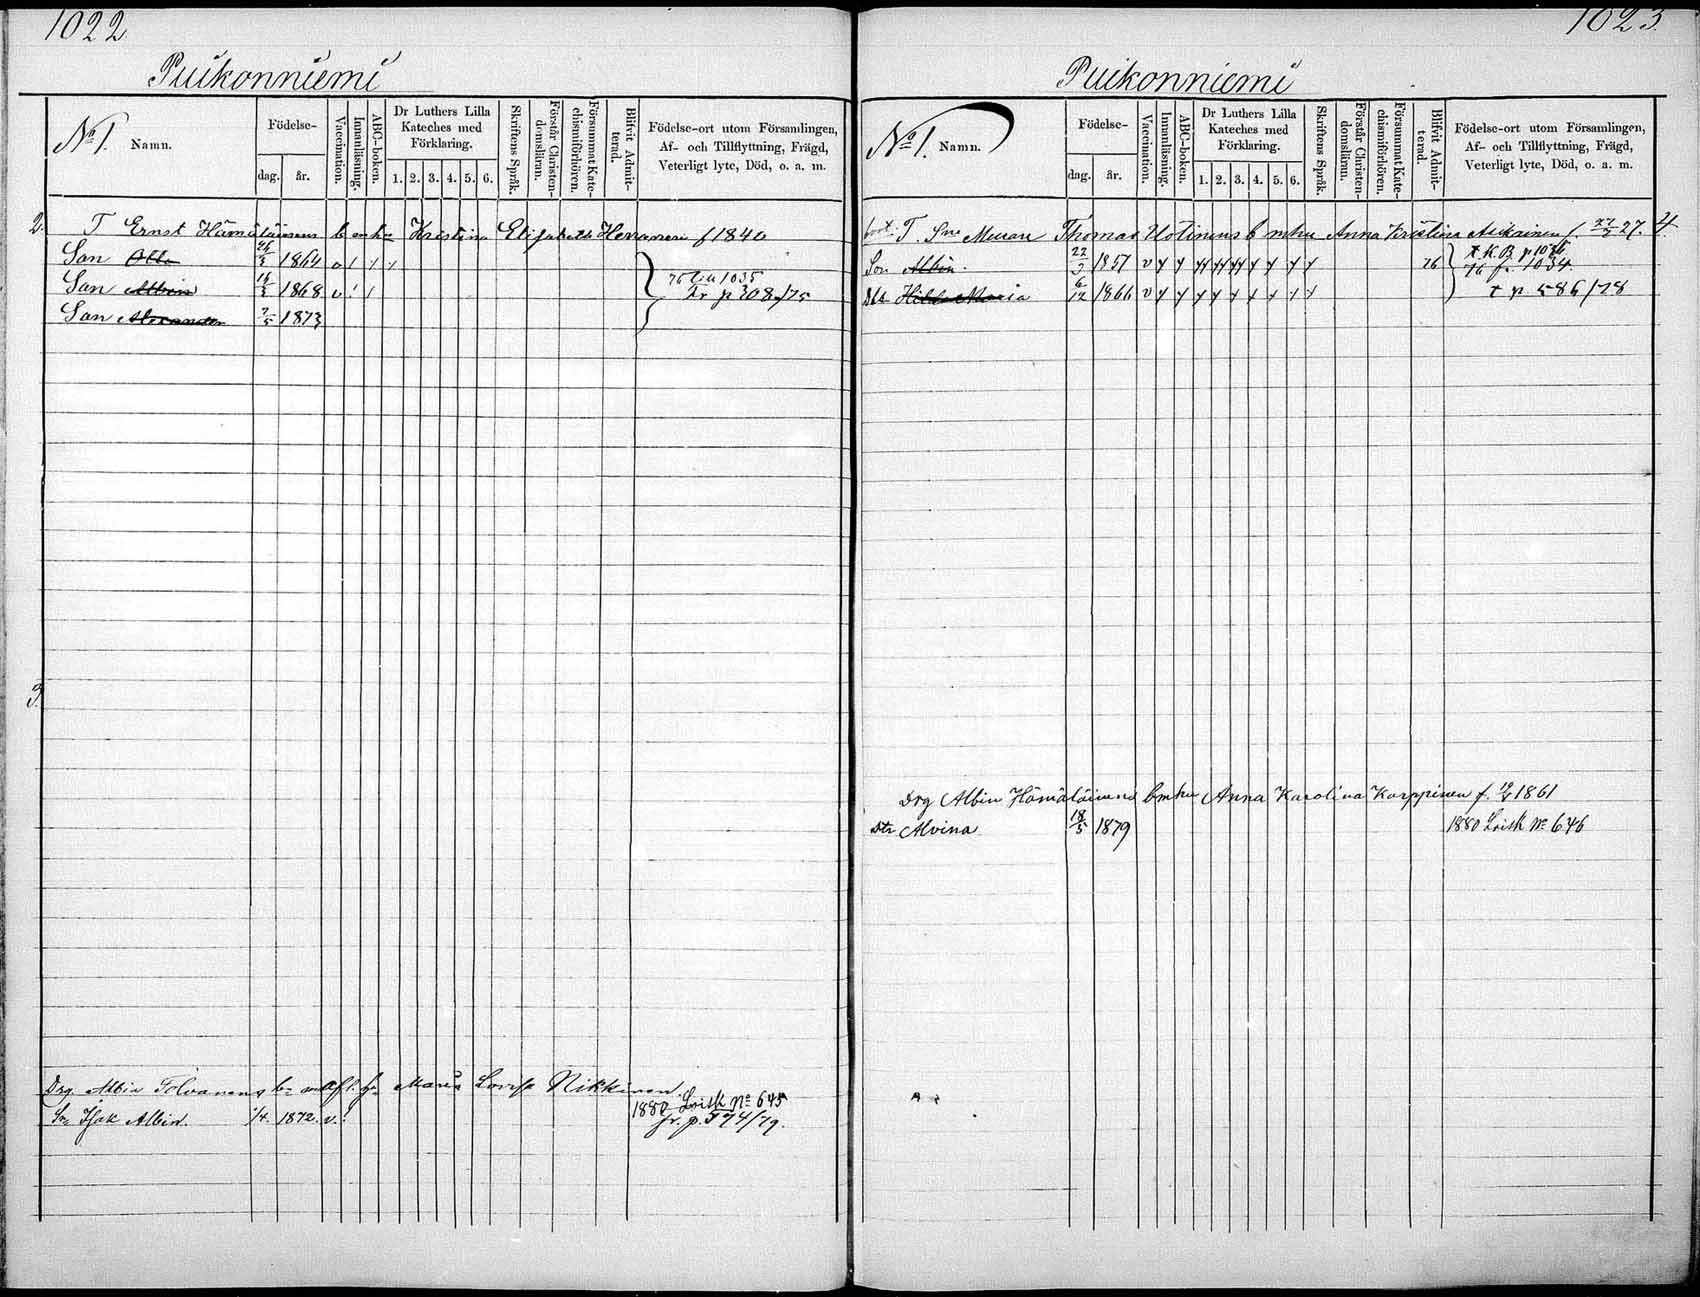 1022
Puikonniemi
No 1. Namn.
Födelse-
dag. år.
Vaccination.
Innanläsning.
ABC-boken.
Dr Luthers Lilla
Kateches med
Förklaring.
1. 2. 3. 4. 5. 6.
Skriftens Språk.
Förstår Christen-
domsläran.
Försummat Kate-
chismiförhören.
Blifvit Admit-
terad.
Födelse-ort utom Församlingen,
Af- och Tillflyttning, Frägd,
Veterligt lyte, Död, o. a. m.
2. T Ernst Hämäläinens Kristina Elisabeth f 1840
Son Otto 1864
Son Albin 1868 v
76 1035
fr p 308/75
Son Alexander 7/5 1873
3.
Drg. Albin Tolvanens Maria Lovisa Nikkinen
So. Isak Albin. 1/4. 1872. v.
1880 Lvisk No 645
fr. p. 574/79.
1023.
Puikonniemi
No 1. Namn.
Födelse-
dag. år.
Vaccination.
Innanläsning.
ABC-boken.
Dr Luthers Lilla
Kateches med
Förklaring.
1. 2. 3. 4. 5. 6.
Skriftens Språk.
Förstår Christen-
domsläran.
Försummat Kate-
chismiförhören.
Blifvit Admit-
terad.
Födelse-ort utom Församlingen,
Af- och Tillflyttning, Frägd,
Veterligt lyte, Död, o. a. m.
T. Thomas Uotinens Anna Kristina Asikainen f. 27. 4.
Son Albin. 1857 v 76
76 fr 1034
Dtr Hilda Maria 6/12 1866 v
p 586/78
Drg Albin Hämäläinens Anna Karolina Karppinen f. 1861
Dtr Alvina 18/5 1879 1880 Lvisk No 646